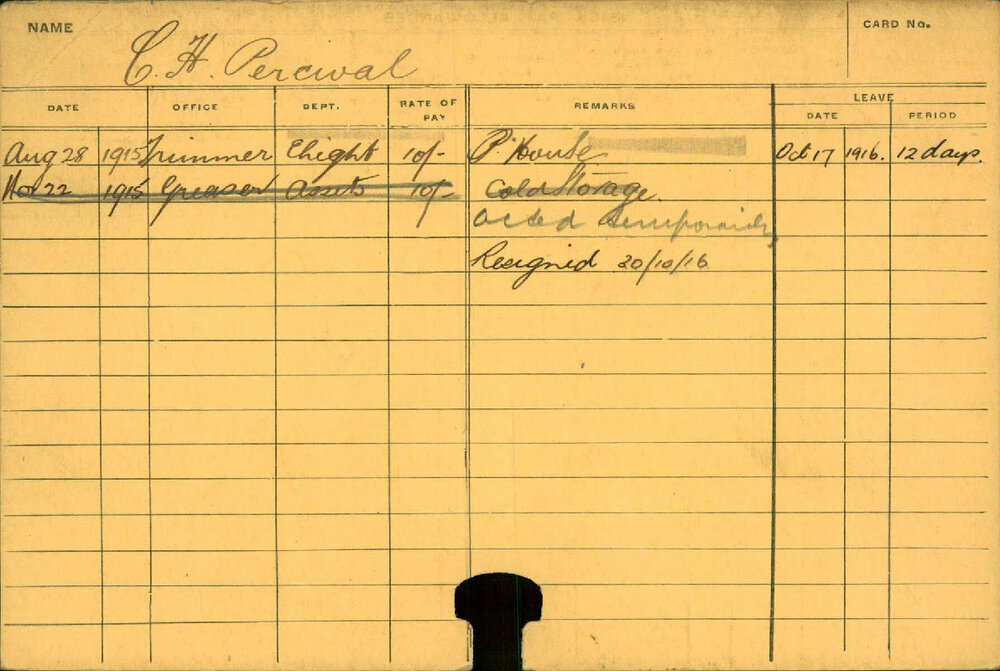 NAME C. H. Percival CARD No.
DATE OFFICE DEPT. RATE OF PAY REMARKS LEAVE
DATE PERIOD
Aug 28 1915 Trimmer Elight 10/- P. House Oct 17 1916. 12 days.
Nov 22 1915 Greaser Assets 10/- Cold Storage.
Acted temporarily
Resigned 20/10/16